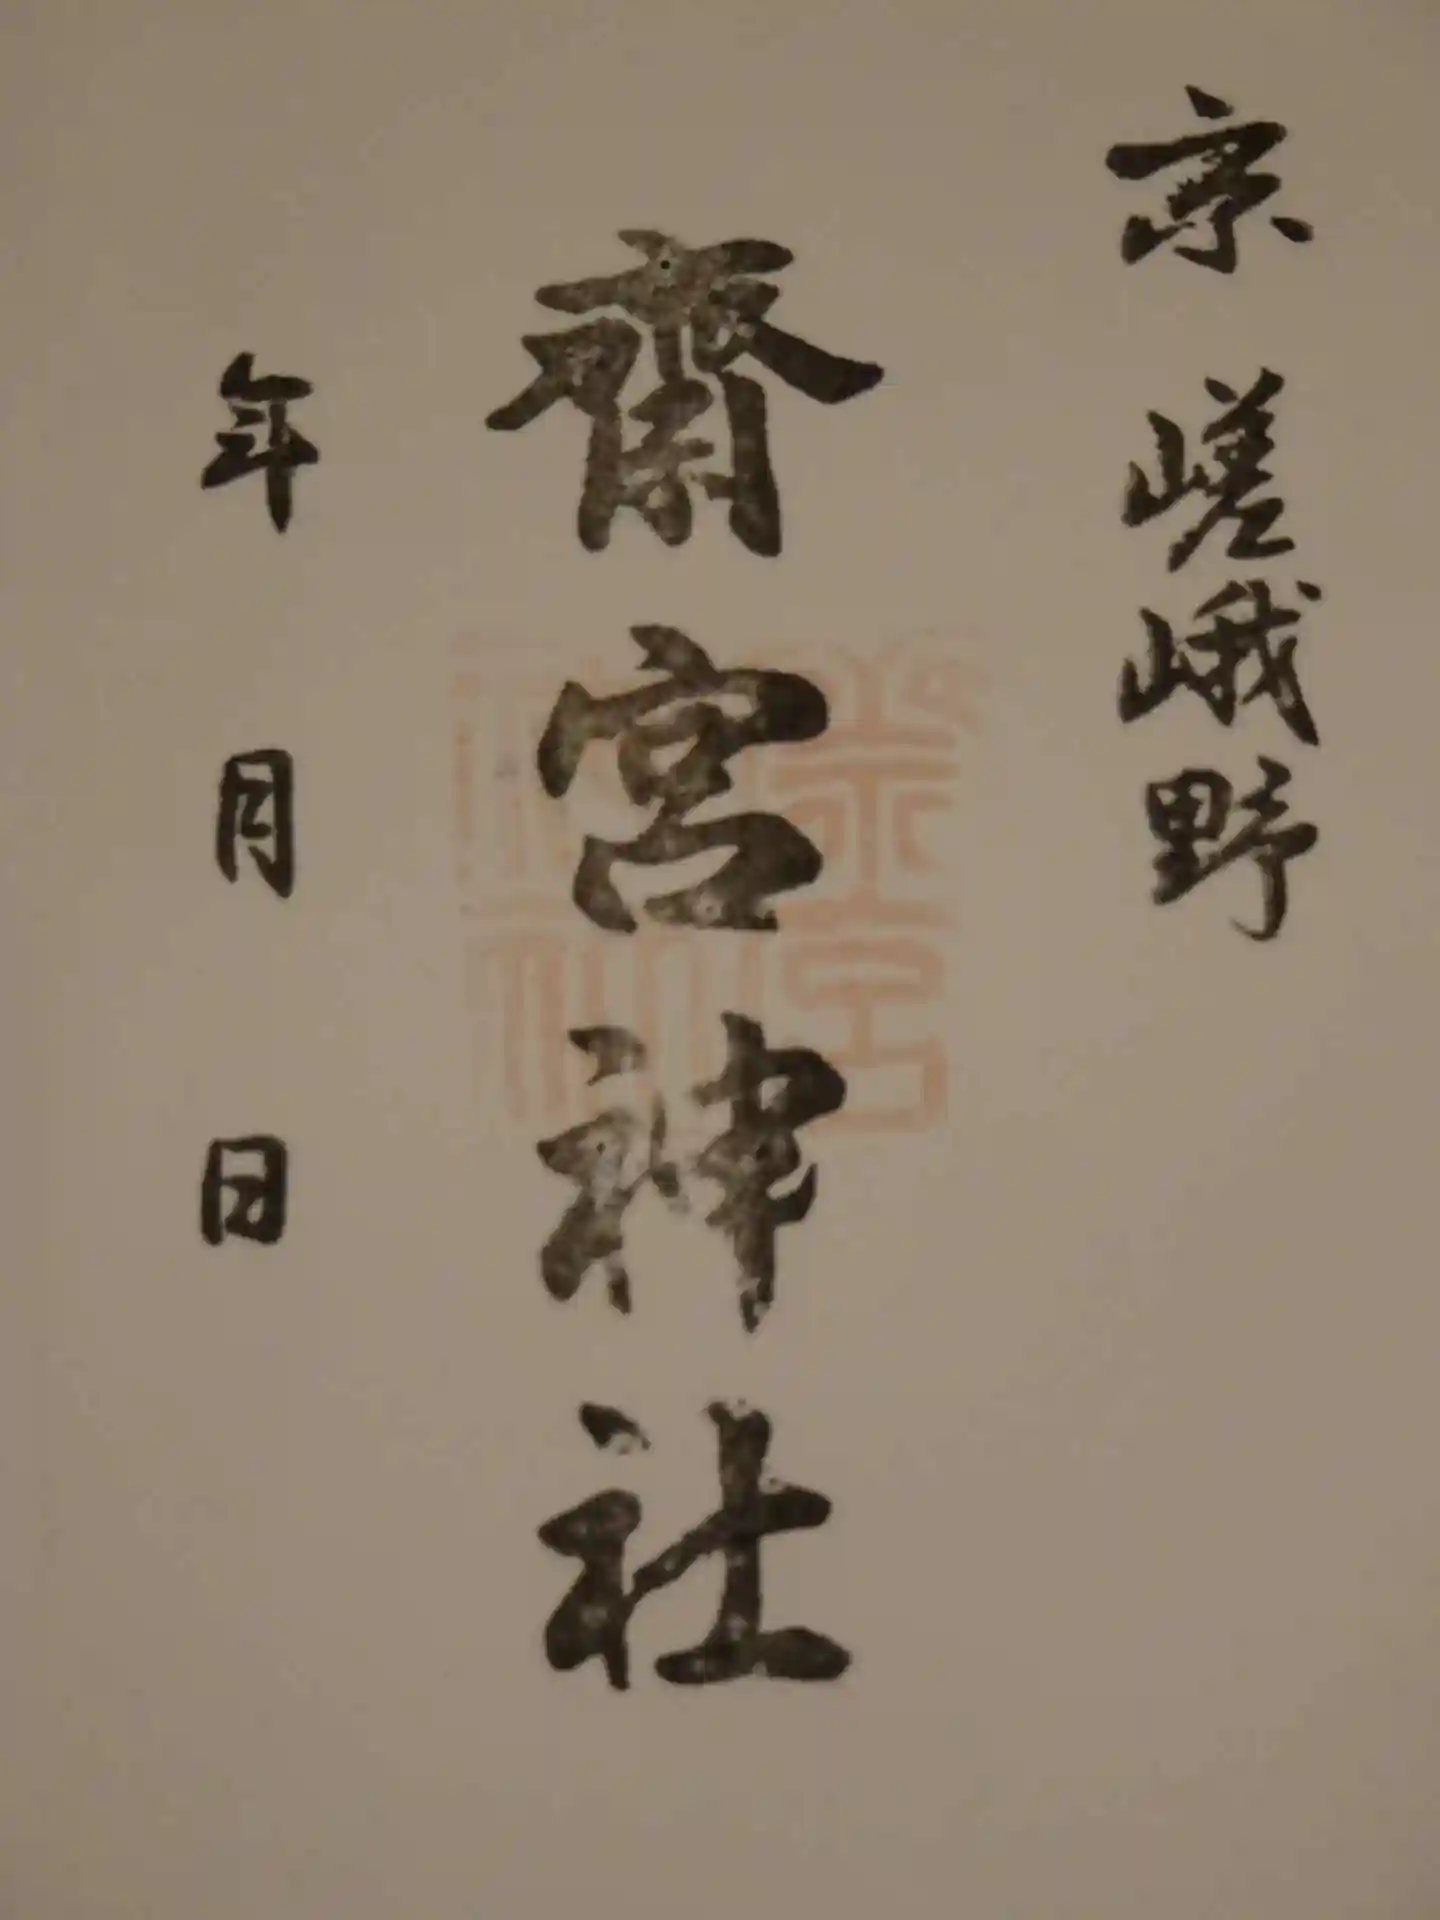 京 嵯峨野
齋宮神社
年 月 日